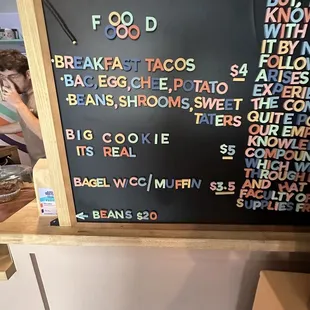 FOOD
•BREAKFAST TACOS
-BAC, EGG, CHEE, POTATO $4
-BEANS, SHROOMS, SWEET
TATERS
BIG COOKIE
ITS REAL $5
BAGEL W CC/MUFFIN $3.5
BEANS $20
BUT,
KNOW
WITH E
IT BY N
FOLLOW
ARISES
EXPERI
THE CON
QUITE PO
OUR EMP
KNOWLE
COMPOUN
WHICH W
THROUGH I
AND HAT
FACULTY OF
SUPPLIES FR